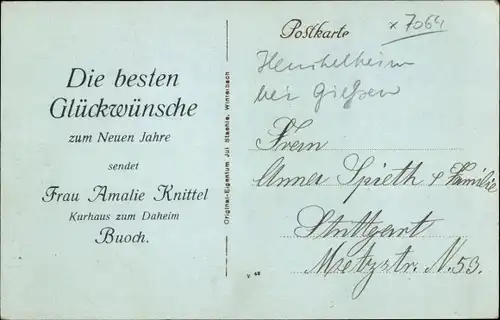 Die besten
Glückwünsche
zum Neuen Jahre
sendet
Frau Amalie Knittel
Kurhaus zum Daheim
Buoch.
Original-Eigentum Jul Staehle, Winterbach
Postkarte
x 7064
bei Gießen
Anna Spieth & Familie
Stuttgart
Metzstr. N. 53.